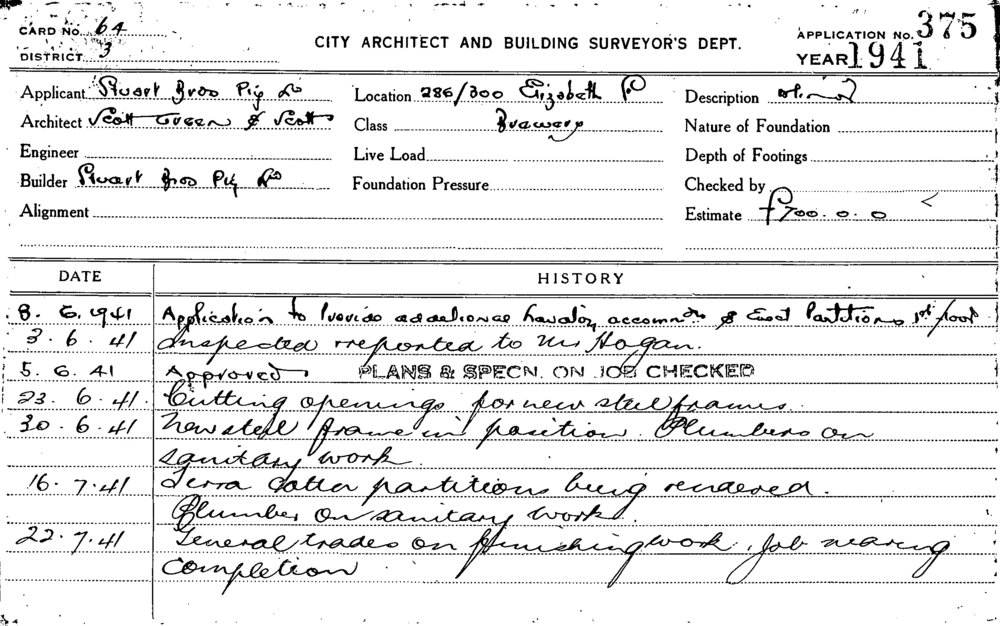 CARD No. 64
DISTRICT 3
CITY ARCHITECT AND BUILDING SURVEYOR'S DEPT.
APPLICATION No. 375
YEAR 1941
Applicant Stuart Bros Pty Ld
Location 286/300 Elizabeth St
Description
Architect Scott Green & Scott
Class Brewery
Nature of Foundation
Engineer
Live Load
Depth of Footings
Builder Stuart Bros Pty Ld
Foundation Pressure
Checked by
Alignment
Estimate £700.0.0
DATE
HISTORY
8. 6. 1941 Application to Provide additional lavatory accommdn & Erect Partitions 1st floor
3. 6. 41 Inspected & reported to Mr Hogan.
5. 6. 41 Approved PLANS & SPECN. ON JOB CHECKED
23. 6. 41. Cutting openings for new steel frames.
30. 6. 41 New steel frame in position. Plumbers on
sanitary work.
16. 7. 41 Terra Cotta partitions being rendered.
Plumber on sanitary work.
22. 7. 41 General trades on finishing work. Job nearing
completion